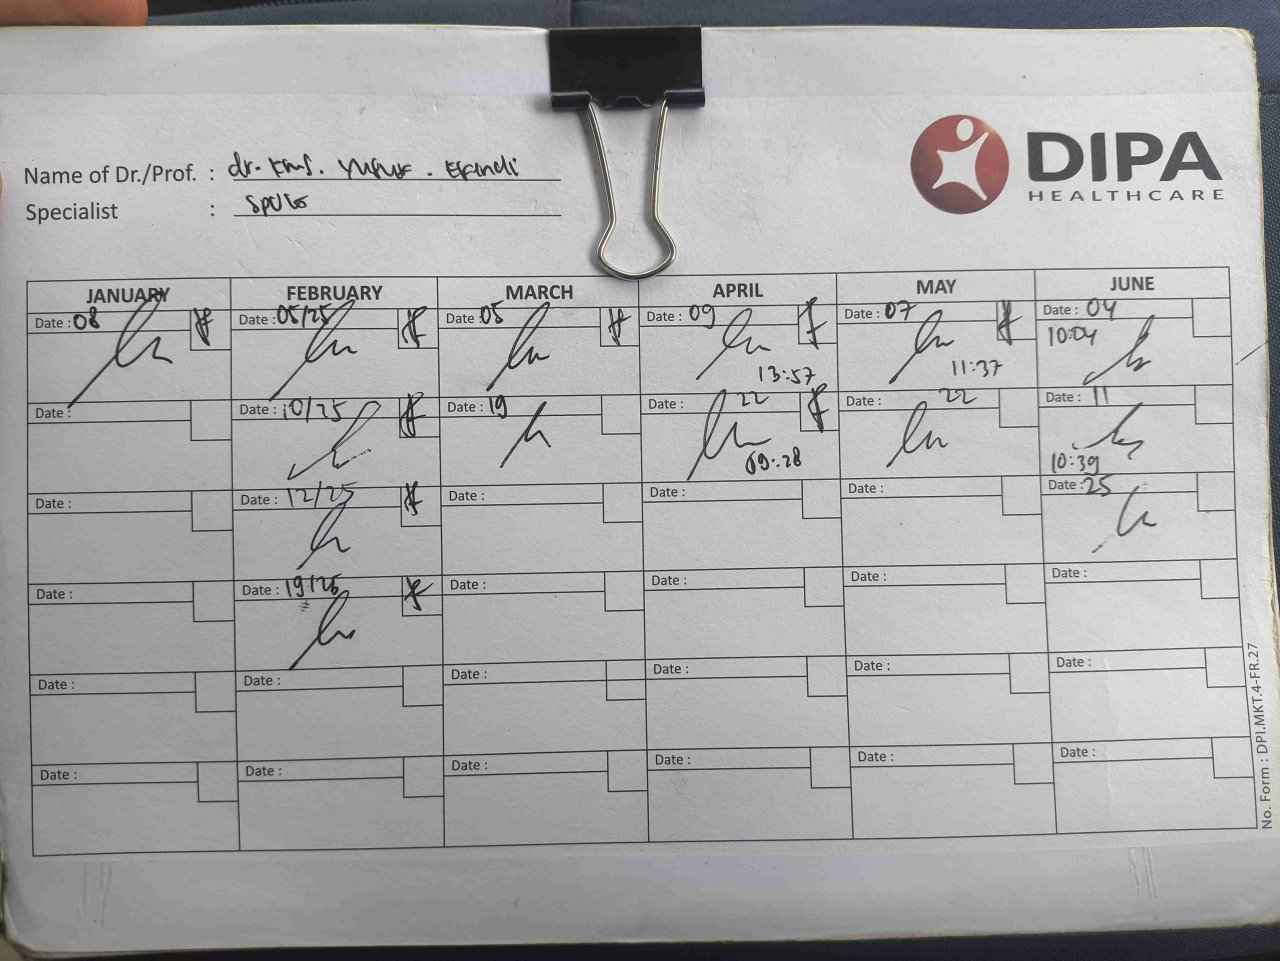 DIPA
HEALTHCARE
Name of Dr./Prof. : dr. Kms. Yusuf. Efendi
Specialist :
JANUARY FEBRUARY MARCH APRIL MAY JUNE
Date : 08 Date : 05/25 Date : 05 Date : 09 Date : 07 Date : 04
13:57 11:37 10:04
Date : Date : 10/25 Date : 19 Date : 22 Date : 22 Date : 11
09:28 10:39
Date : Date : 12/25 Date : Date : Date : Date : 25
Date : Date : 19/25 Date : Date : Date : Date :
Date : Date : Date : Date : Date : Date :
Date : Date : Date : Date : Date : Date :
No. Form : DPI.MKT.4-FR.27